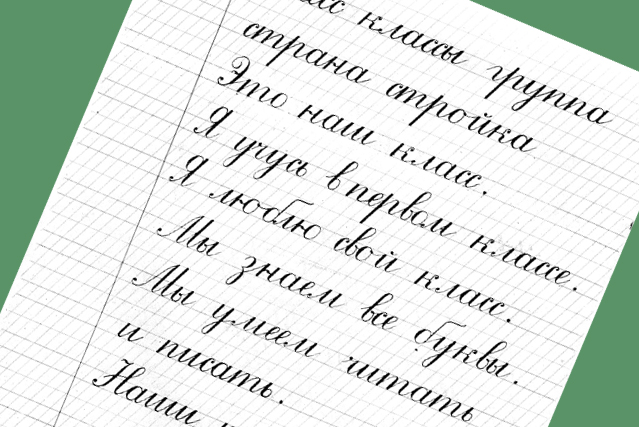 классы группа
страна стройка
Это наш класс.
Я учусь в первом классе.
Я люблю свой класс.
Мы знаем все буквы.
Мы умеем читать
и писать.
Наши